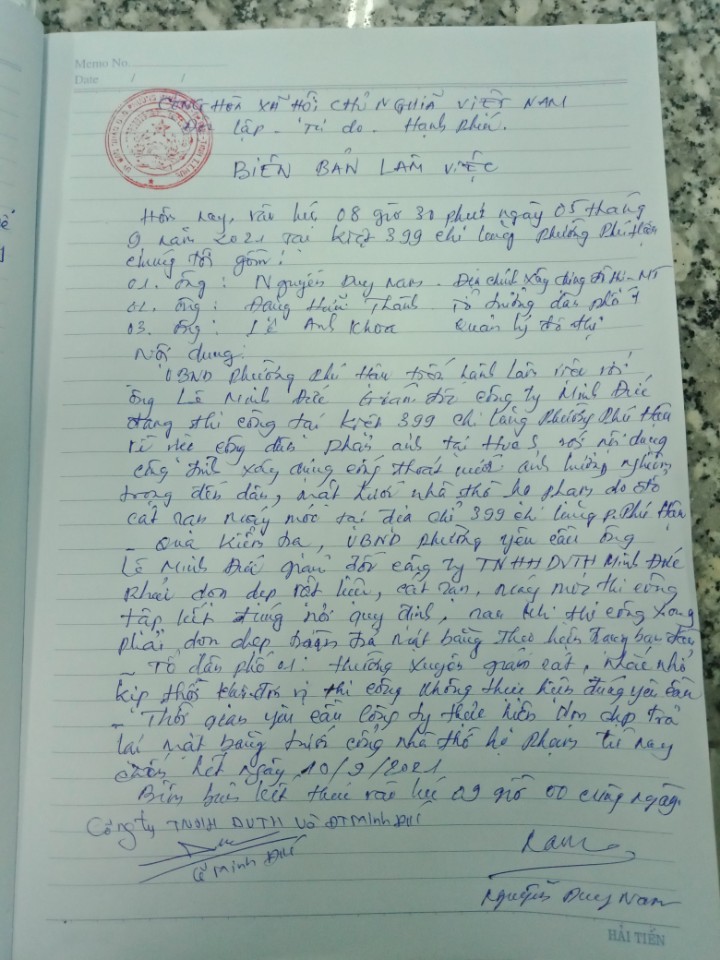 Memo No.
Date / /
CỘNG HÒA XÃ HỘI CHỦ NGHĨA VIỆT NAM
lập - Tự do - Hạnh phúc.
BIÊN BẢN LÀM VIỆC
Hôm nay, vào lúc 08 giờ 30 phút ngày 05 tháng
9 năm 2021 tại kiệt 399 chi lăng phường Phú Hậu
chúng tôi gồm:
01. ông: Nguyễn Duy Nam - Địa chính xây dựng đô thị - MT
02. ông: Đặng Hữu Thành Tổ trưởng dân phố 1
03. ông: Lê Anh Khoa Quản lý đô thị
Nội dung:
UBND phường Phú Hậu tiến hành làm việc với
ông Lê Minh Đức Giám đốc công ty Minh Đức
đang thi công tại kiệt 399 chi lăng phường Phú Hậu
về việc công dân phản ánh tại Hue S với nội dung
công trình xây dựng cống thoát nước ảnh hưởng nghiêm
trọng đến dân, mặt trước nhà thờ họ phạm do đổ
cát sạn máy móc tại địa chỉ 399 chi lăng P. Phú Hậu
- Qua kiểm tra, UBND phường yêu cầu ông
Lê Minh Đức giám đốc công ty TNHH DVTH Minh Đức
phải dọn dẹp vật liệu, cát sạn, máy móc thi công
tập kết đúng nơi quy định, sau khi thi công xong
phải dọn dẹp hoàn trả mặt bằng theo hiện trạng ban đầu
- Tổ dân phố 01: thường xuyên giám sát, nhắc nhở
kịp thời đơn vị thi công không thực hiện đúng yêu cầu
- Thời gian yêu cầu công ty thực hiện dọn dẹp trả
lại mặt bằng trước cổng nhà thờ họ phạm từ nay
đến hết ngày 10/9/2021
Biên bản kết thúc vào lúc 09 giờ 00 cùng ngày.
Công ty TNHH DVTH và ĐT Minh Đức
Lê Minh Đức
Nam
Nguyễn Duy Nam
HẢI TIẾN